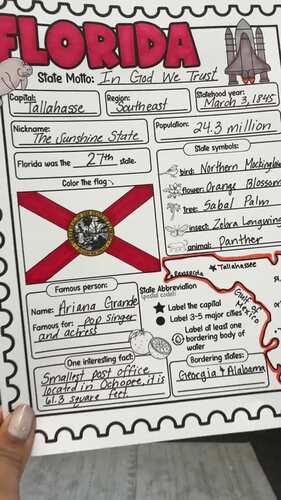 FLORIDA
State Motto: In God We Trust
Capital: Tallahasse
Region: Southeast
Statehood year: March 3, 1845
Nickname: The Sunshine State
Population: 24.3 million
Florida was the 27th state.
State symbols:
bird: Northern Mockingbir
flower: Orange Blossom
tree: Sabal Palm
insect: Zebra Longwing
animal: Panther
Color the flag
Famous person:
Name: Ariana Grande
Famous for: pop singer
and actress
State Abbreviation
(postal code):
Label the capital
Label 3-5 major cities
Label at least one
bordering body of
water
Pensacola
Tallahassee
Gulf of
Mexico
One interesting fact:
Smallest post office
located in Ochopee, it is
61.3 square feet.
Bordering states:
Georgia & Alabama